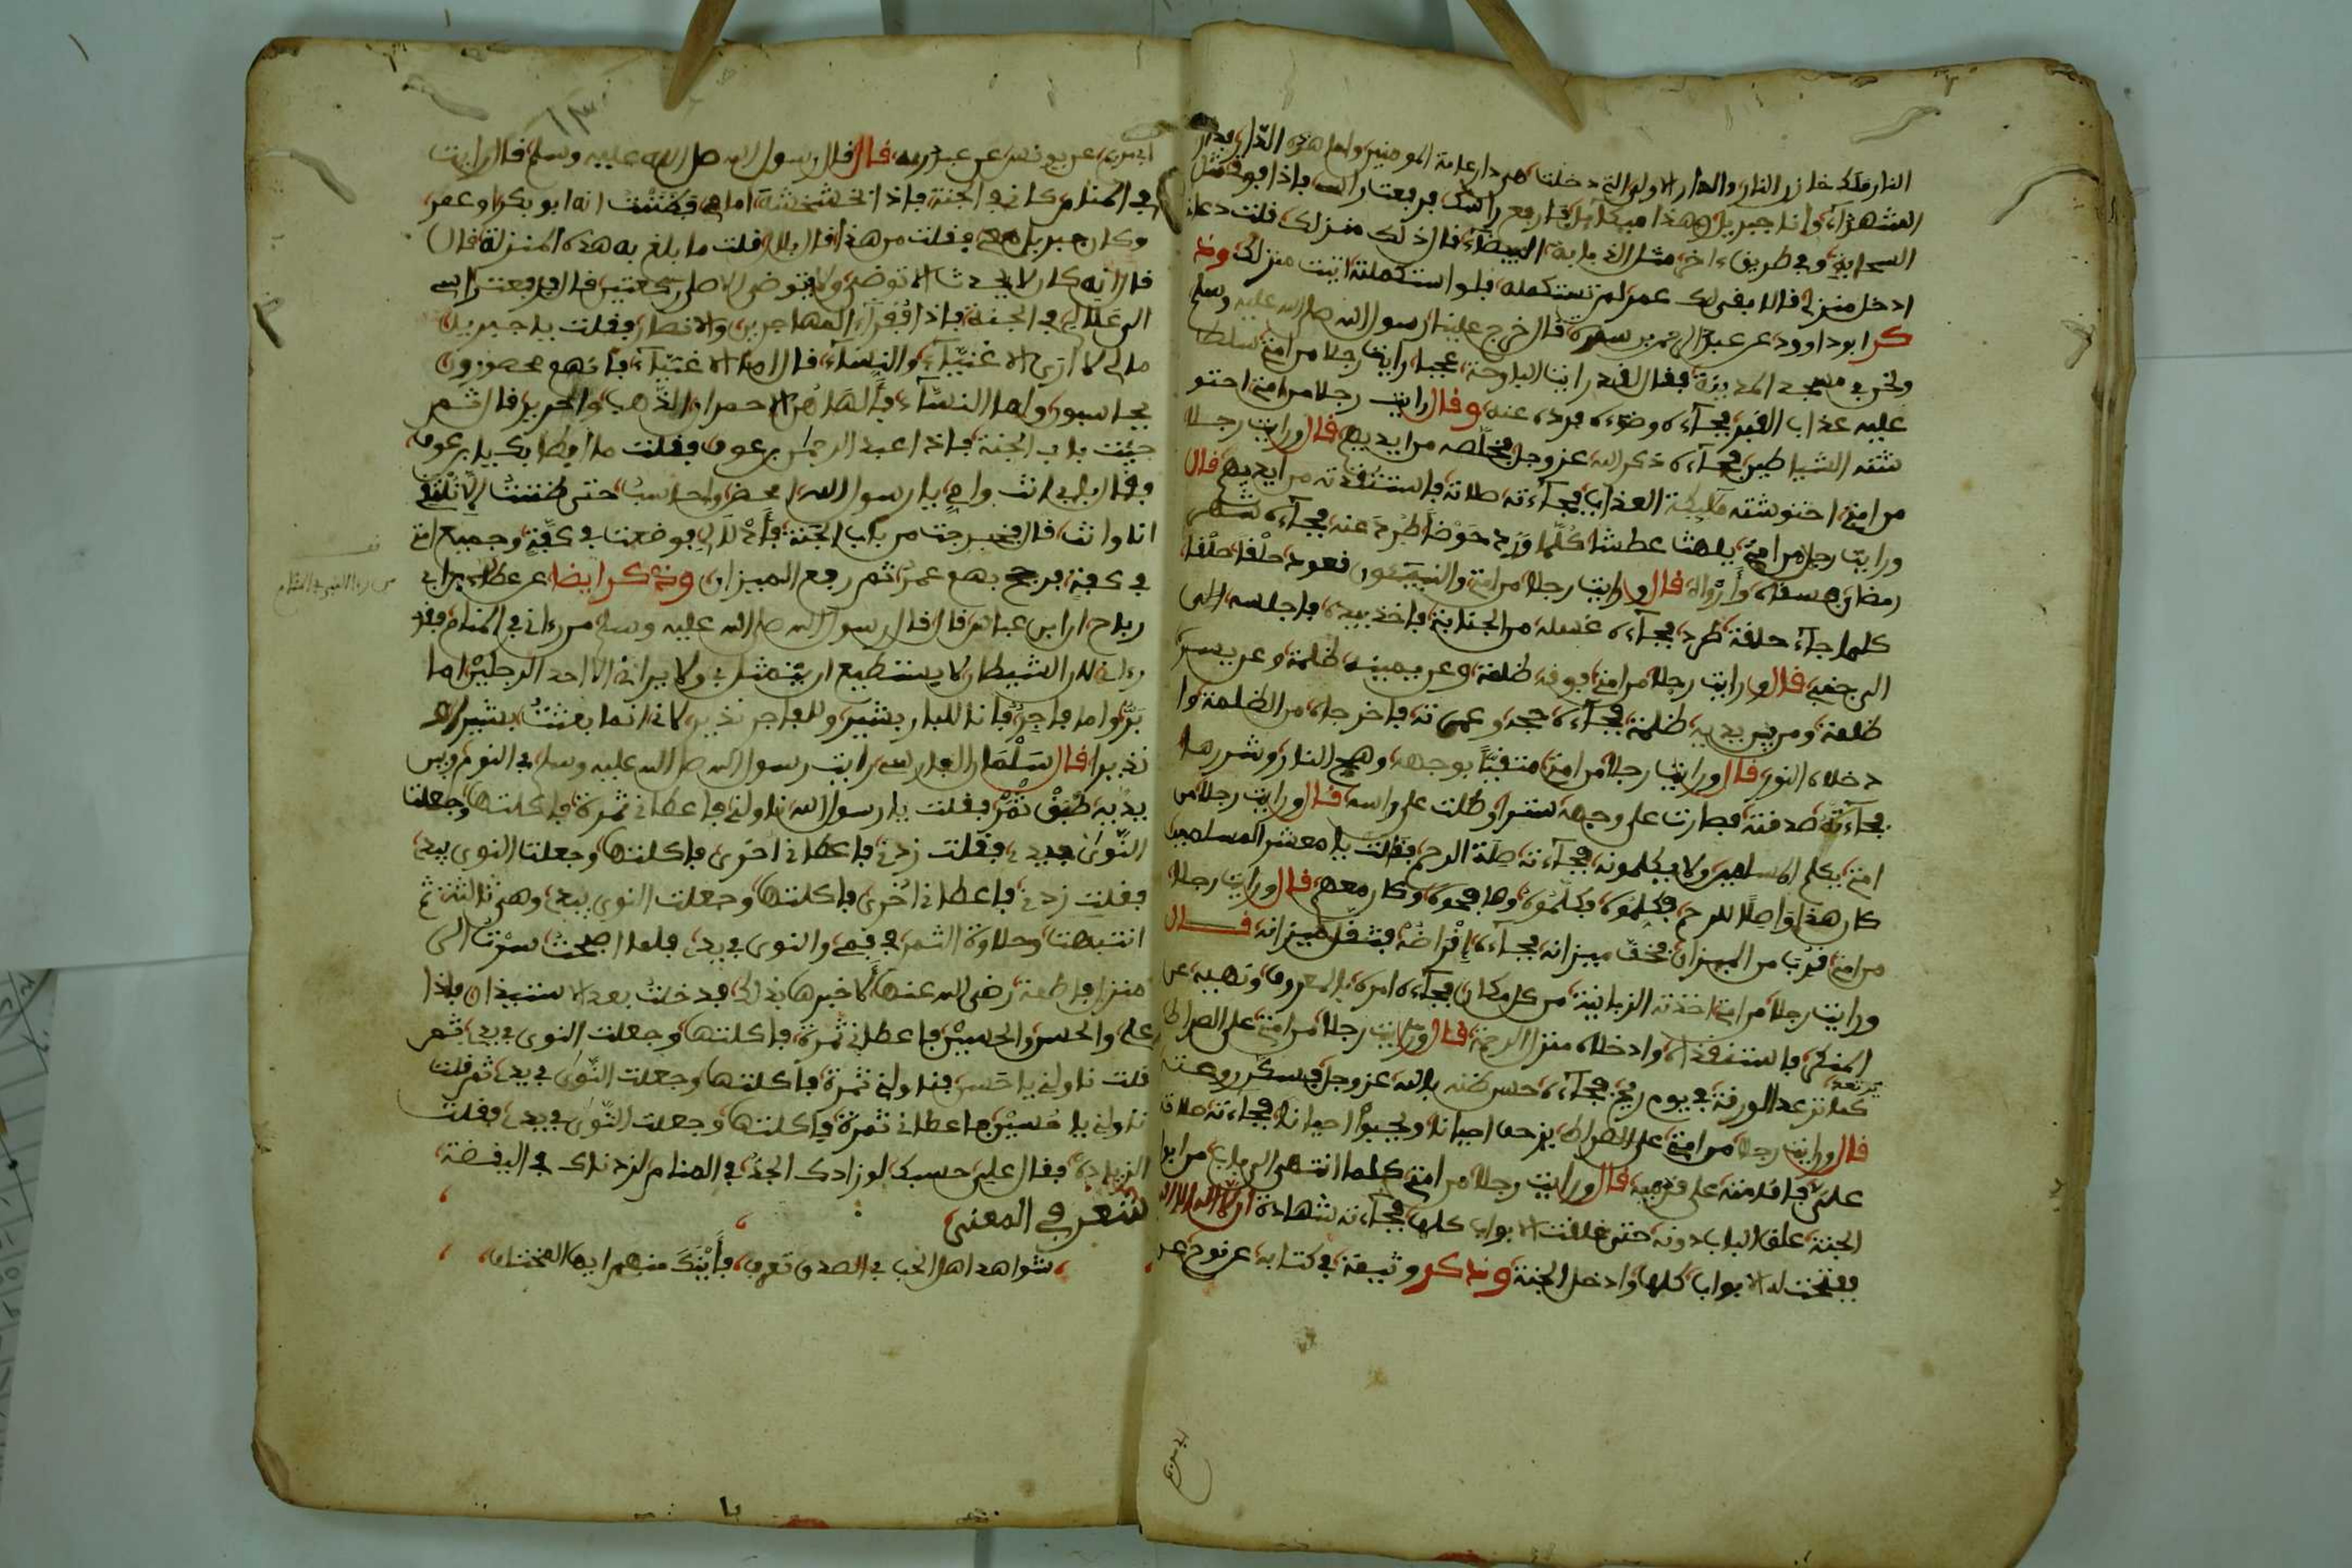 النار مالك خازن النار والدار الاولى التي دخلت هي دار عامة المومنين واما هذه الدار فدار
الشهداء وانا جبريل وهذا ميكائيل فارفع راسك فرفعت راسي فاذا فوقي مثل
السحابة وفي طريق اخر مثل الذبابة البيضاء قال ذلك منزلك قلت دعاني
ادخل منزلي قال بقي لك عمر لم تستكمله فلو استكملته اتيت منزلك وذ
كر ابو داوود عن عبد الرحمن بن سمرة قال خرج علينا رسول الله صلى الله عليه وسلم
ونحن في مسجد المدينة فقال لقد رايت البارحة عجبا رايت رجلا من امتي سلط
عليه عذاب القبر فجاءه وضوءه فرده عنه وقال رايت رجلا من امتي احتو
شته الشياطين فجاءه ذكر الله عز وجل فخلصه من ايديهم قال ورايت رجلا
من امتي احتوشته ملائكة العذاب فجاءته صلاته فاستنقذته من ايديهم قال
ورايت رجلا من امتي يلهث عطشا كلما ورد حوضا طرد عنه فجاءه شهر
رمضان فسقاه وارواه قال ورايت رجلا من امتي والنبيئون قعود حلقا حلقا
كلما جاء حلقة طرد فجاءه غسله من الجنابة فاخذ بيده فاجلسه الى
الى جنبي قال ورايت رجلا من امتي فوقه ظلمة وعن يمينه ظلمة وعن يسر
ظلمة ومن بين يديه ظلمة فجاءه حجه وعمرته فاخرجاه من الظلمة وا
دخلاه النور قال ورايت رجلا من امتي متقيا بوجهه وهج النار وشررها
فجاءته صدقته فصارت على وجهه سترا وظلت على راسه قال ورايت رجلا من
امتي يكلم المسلمين ولا يكلمونه فجاءته صلة الرحم فقالت يا معشر المسلمين
كان هذا واصلا للرحم فكلموه فكلموه وصافحوه وكان معهم قال ورايت رجلا
من امتي قرب من الميزان فخف ميزانه فجاءه اقراضه فثقل ميزانه قال
ورايت رجلا من امتي اخذته الزبانية من كل مكان فجاءه امره بالمعروف ونهيه عن
المنكر فاستنقذاه وادخلاه منزل الرحمة قال ورايت رجلا من امتي على الصراط
كما ترعد الورقة في يوم ريح فجاءه حسن ظنه بالله عز وجل فسكن روعته
قال ورايت رجلا من امتي على الصراط يزحف احيانا ويحبو احيانا فجاءته صلاته
علي فاقامته على قدميه قال ورايت رجلا من امتي كلما انتهى الى باب من ابوا
الجنة غلق الباب دونه حتى غلقت الابواب كلها فجاءته شهادة ان لا اله الا الله
ففتحت له الابواب كلها وادخل الجنة وذكر وثيمة في كتابه عن نوح عن
عن يونس عن عبد ربه قال قال رسول الله صلى الله عليه وسلم قال رايت
في المنام كاني في الجنة فاذا انا بخشخشة امامي فظننت انه ابو بكر او عمر
وكان جبريل معي فقلت من هذا قال بلال قلت ما بلغ به هذه المنزلة قال
قال انه كان لا يحدث الا توضى ولا يتوضى الا صلى ركعتين قال فرفعت راسي
الى في الجنة فاذا فقراء المهاجرين والانصار فقلت يا جبريل
ما لي لا ارى الاغنياء والنساء قال اما الاغنياء فانهم محصورون
يحاسبون واما النساء فالهاهن الاحمران الذهب والحرير قال ثم
جئت باب الجنة فاذا عبد الرحمن بن عوف فقلت ما ابطا بك يا بن عوف
فقال بابي انت وامي يا رسول الله احضر واحاسب حتى ظننت الا نلتقي
انا وانت قال فخرجت من باب الجنة فوضعت في كفة وجميع امتي
في كفة فرجح بهم عمر ثم رفع الميزان وذكر ايضا عن عطاء بن ابي
رباح ان ابن عباس قال قال رسول الله صلى الله عليه وسلم من رءاني في المنام فقد
رءاني لان الشيطان لا يستطيع ان يتمثل بي ولا يراني الا احد الرجلين اما
بر واما فاجر فانا للبار بشير وللفاجر نذير لاني انما بعثت بشيرا و
نذيرا قال سلمان الفارسي رايت رسول الله صلى الله عليه وسلم في النوم وبين
يديه طبق تمر فقلت يا رسول الله ناولني فاعطاني تمرة فاكلتها وجعلت
النوى بيدي فقلت زدني فاعطاني اخرى فاكلتها وجعلت النوى بيدي
فقلت زدني فاعطاني اخرى فاكلتها وجعلت النوى بيدي وهي ثالثة ثم
انتبهت وحلاوة التمر في فمي والنوى في يدي فلما اصبحت سرت الى
منزل فاطمة رضي الله عنها لاخبرها بذلك فدخلت بعد الاستيذان فاذا
علي والحسن والحسين فاعطاني تمرة فاكلتها وجعلت النوى في يدي ثم
قلت ناولني يا حسن فناولني تمرة فاكلتها وجعلت النوى في يدي ثم قلت
ناولني يا حسين فاعطاني تمرة فاكلتها وجعلت النوى في يدي فقلت
الزيادة فقال علي حسبك لو زادك الجد في المنام لزدناك في اليقضة
شعر في المعنى
شواهد اهل الحب في الصدق تعرف فاينك منهم ايها المتخلف